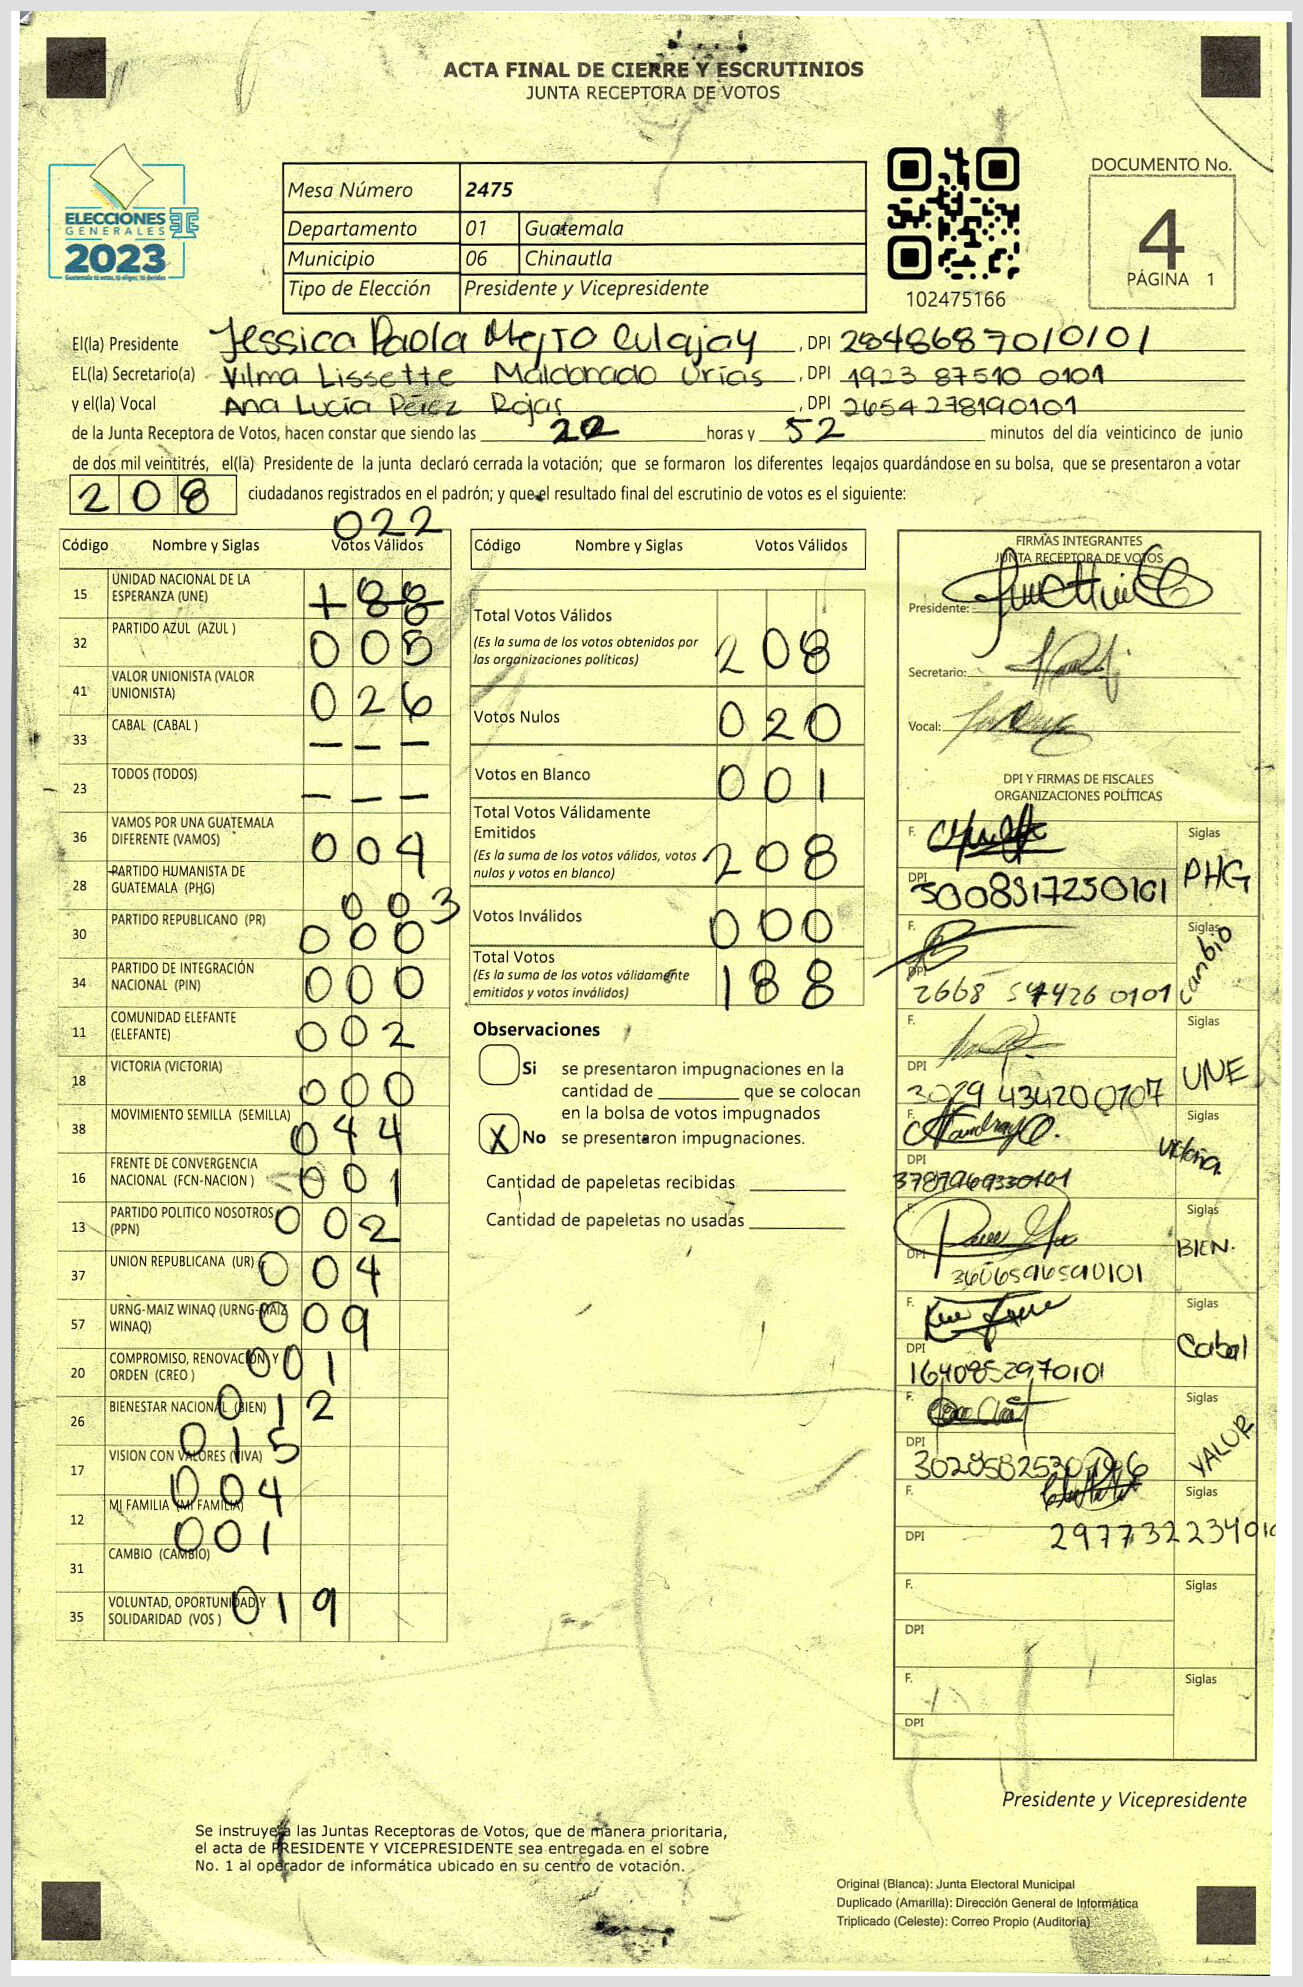 ACTA FINAL DE CIERRE Y ESCRUTINIOS
JUNTA RECEPTORA DE VOTOS
ELECCIONES
GENERALES
2023
Mesa Número 2475
Departamento 01 Guatemala
Municipio 06 Chinautla
Tipo de Elección Presidente y Vicepresidente
102475166
DOCUMENTO No.
4
PÁGINA 1
El(la) Presidente Jessica Paola Mejto Culajay, DPI 2848687010101
EL(la) Secretario(a) Vilma Lissette Maldonado Urias, DPI 1923 87510 0101
y el(la) Vocal Ana Lucía Pérez Rojas, DPI 2654278190101
de la Junta Receptora de Votos, hacen constar que siendo las 22 horas y 52 minutos del día veinticinco de junio
de dos mil veintitrés, el(la) Presidente de la junta declaró cerrada la votación; que se formaron los diferentes legajos guardándose en su bolsa, que se presentaron a votar
208 ciudadanos registrados en el padrón; y que el resultado final del escrutinio de votos es el siguiente:
022
Código Nombre y Siglas Votos Válidos
15 UNIDAD NACIONAL DE LA ESPERANZA (UNE) 188
32 PARTIDO AZUL (AZUL ) 005
41 VALOR UNIONISTA (VALOR UNIONISTA) 026
33 CABAL (CABAL ) – – –
23 TODOS (TODOS) – – –
36 VAMOS POR UNA GUATEMALA DIFERENTE (VAMOS) 004
28 PARTIDO HUMANISTA DE GUATEMALA (PHG) 003
30 PARTIDO REPUBLICANO (PR) 000
34 PARTIDO DE INTEGRACIÓN NACIONAL (PIN) 000
11 COMUNIDAD ELEFANTE (ELEFANTE) 002
18 VICTORIA (VICTORIA) 000
38 MOVIMIENTO SEMILLA (SEMILLA) 044
16 FRENTE DE CONVERGENCIA NACIONAL (FCN-NACION ) 001
13 PARTIDO POLITICO NOSOTROS (PPN) 002
37 UNION REPUBLICANA (UR) 004
57 URNG-MAIZ WINAQ (URNG-MAIZ WINAQ) 009
20 COMPROMISO, RENOVACION Y ORDEN (CREO ) 001
26 BIENESTAR NACIONAL (BIEN) 012
17 VISION CON VALORES (VIVA) 015
12 MI FAMILIA (MI FAMILIA) 004
31 CAMBIO (CAMBIO) 001
35 VOLUNTAD, OPORTUNIDAD Y SOLIDARIDAD (VOS ) 019
Código Nombre y Siglas Votos Válidos
Total Votos Válidos
(Es la suma de los votos obtenidos por las organizaciones políticas) 208
Votos Nulos 020
Votos en Blanco 001
Total Votos Válidamente Emitidos
(Es la suma de los votos válidos, votos nulos y votos en blanco) 208
Votos Inválidos 000
Total Votos
(Es la suma de los votos válidamente emitidos y votos inválidos) 188
Observaciones
Si se presentaron impugnaciones en la
cantidad de ________ que se colocan
en la bolsa de votos impugnados
X No se presentaron impugnaciones.
Cantidad de papeletas recibidas
Cantidad de papeletas no usadas
FIRMAS INTEGRANTES
JUNTA RECEPTORA DE VOTOS
Presidente:
Secretario:
Vocal:
DPI Y FIRMAS DE FISCALES
ORGANIZACIONES POLÍTICAS
F. Siglas PHG
DPI 3008317250101
F. Siglas Cambio
DPI 2668 574260101
F. Siglas UNE
DPI 3029 434200707
F. Siglas Victoria
DPI 3787969330101
F. Siglas BIEN.
DPI 3606596590101
F. Siglas Cabal
DPI 1640852970101
F. Siglas VALOR
DPI
F. Siglas
DPI 2977322340
F. Siglas
DPI
F. Siglas
DPI
Presidente y Vicepresidente
Se instruye a las Juntas Receptoras de Votos, que de manera prioritaria,
el acta de PRESIDENTE Y VICEPRESIDENTE sea entregada en el sobre
No. 1 al operador de informática ubicado en su centro de votación.
Original (Blanca): Junta Electoral Municipal
Duplicado (Amarilla): Dirección General de Informática
Triplicado (Celeste): Correo Propio (Auditoría)